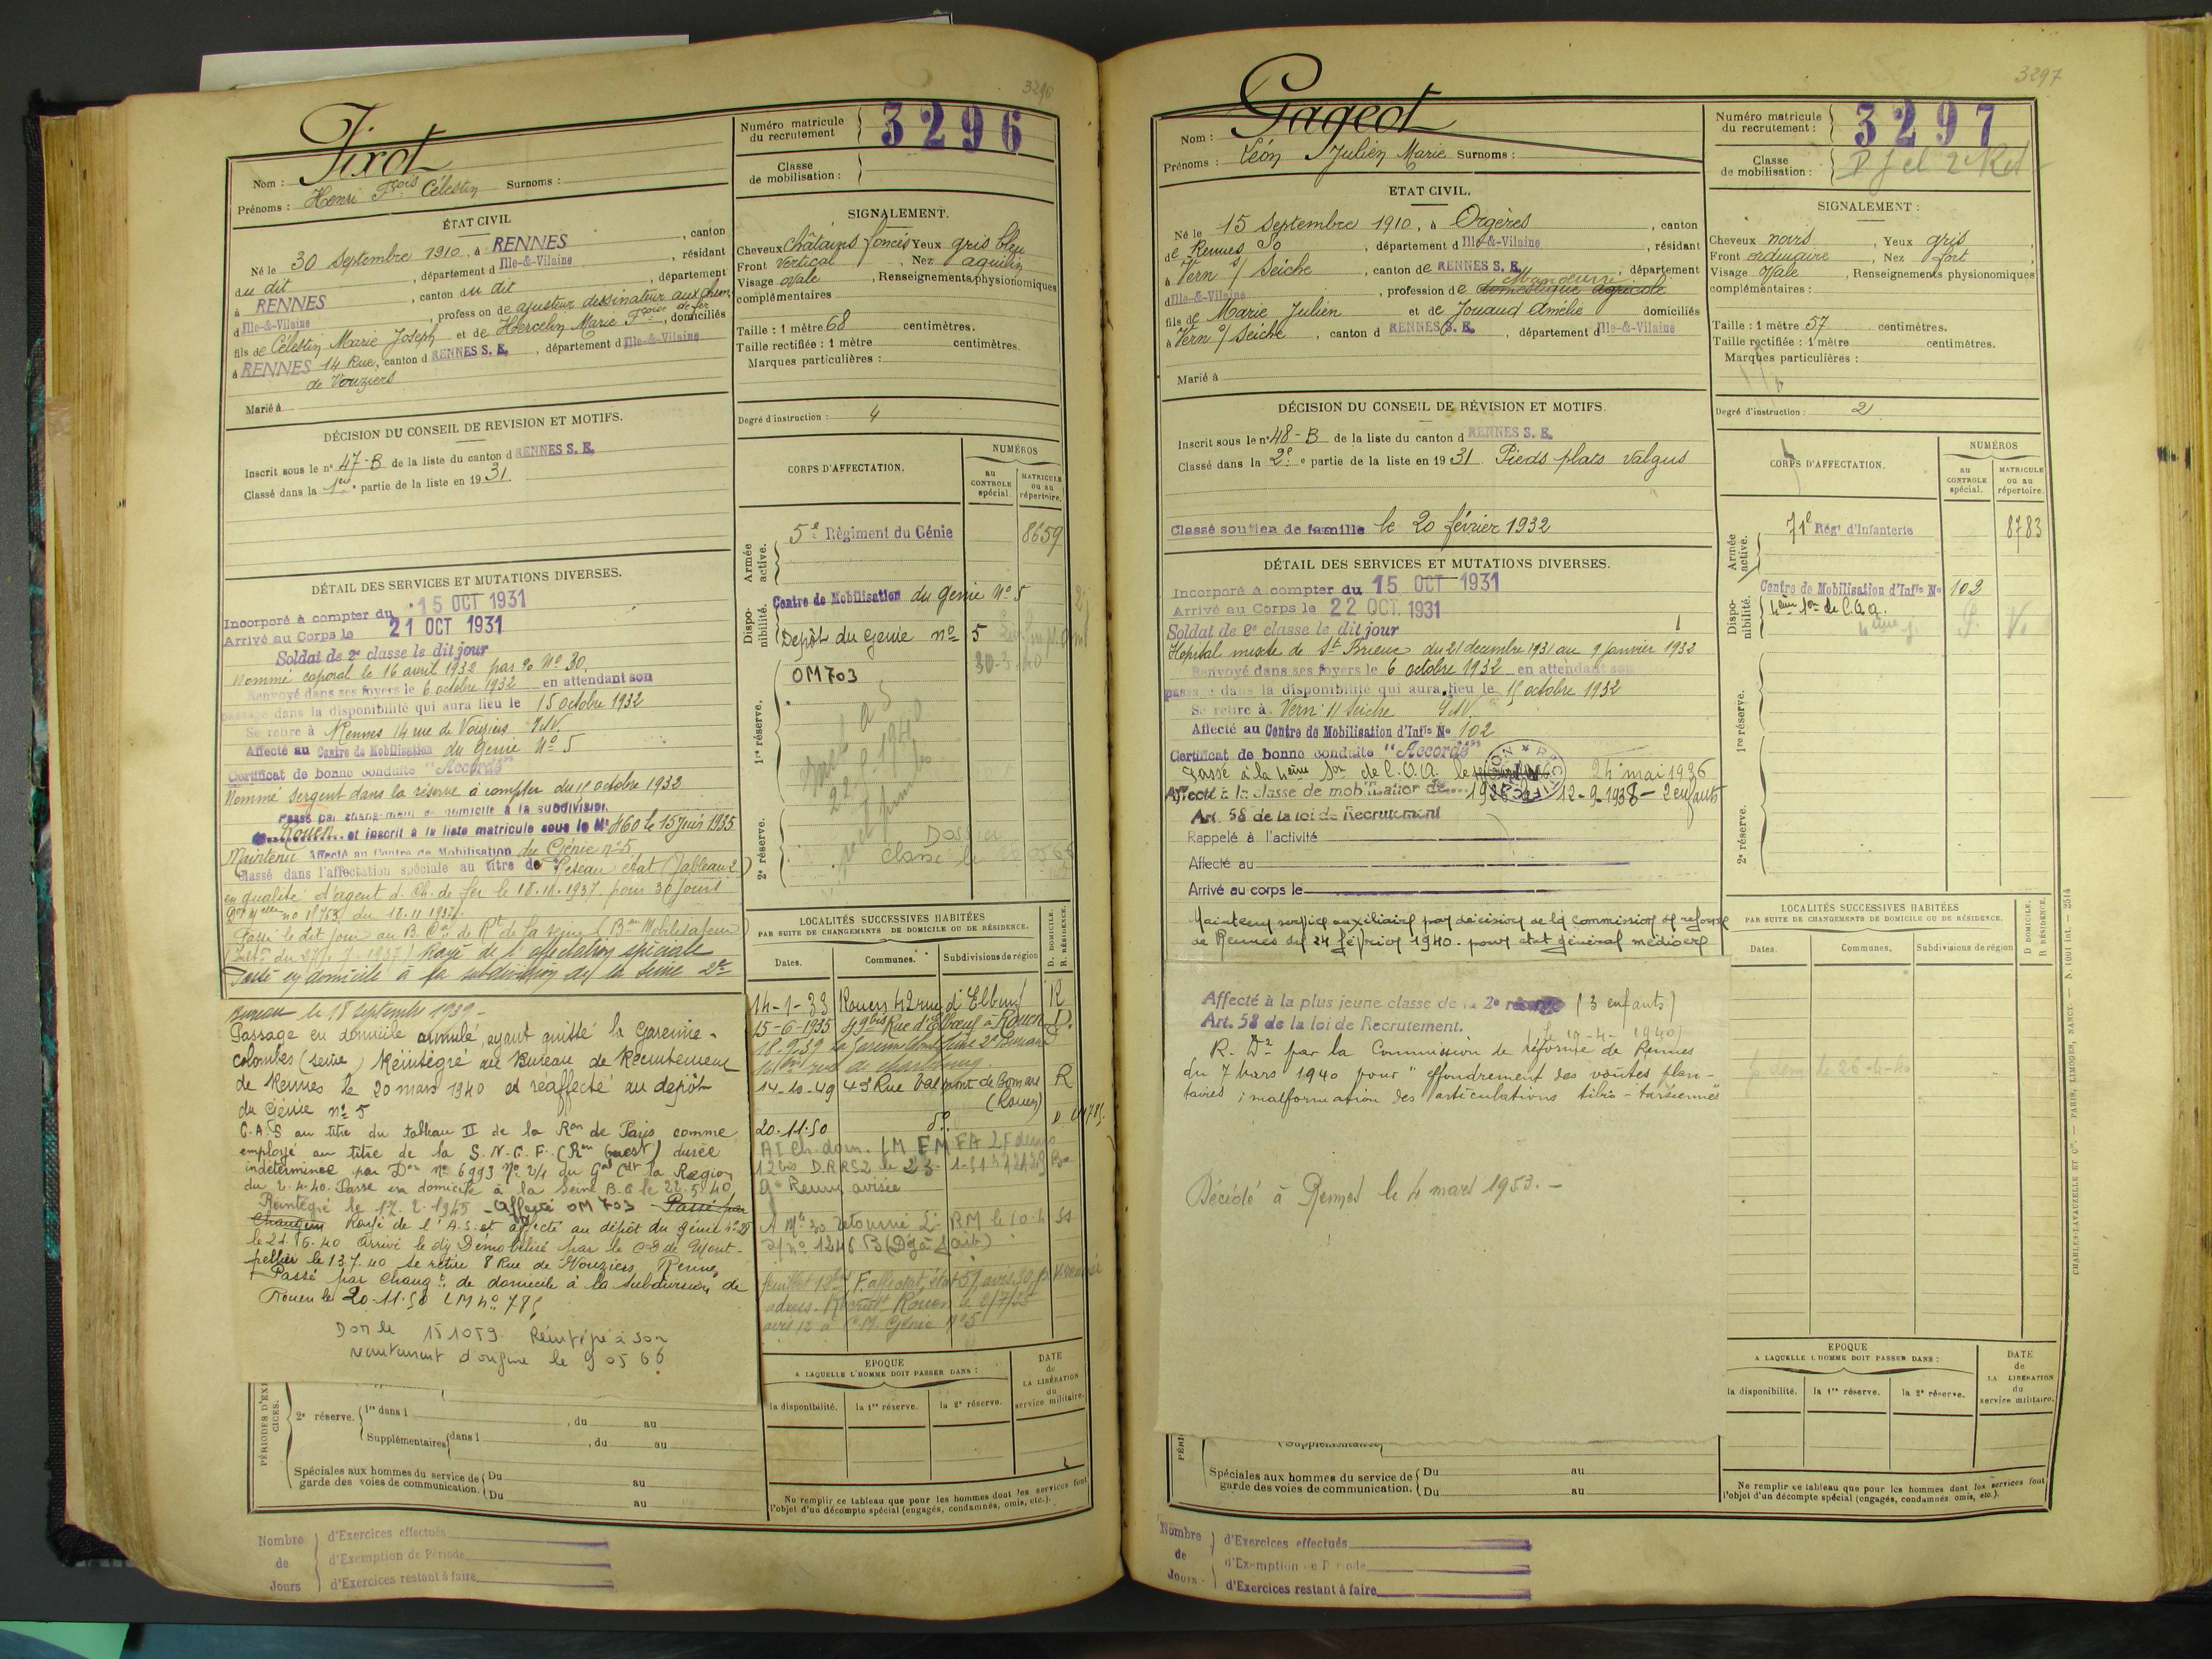 3296
Nom : Tixot
Prénoms : Henri Fçois Célestin Surnoms :
Numéro matricule du recrutement 3296
Classe de mobilisation :
ÉTAT CIVIL
Né le 30 Septembre 1910, à RENNES, canton
du dit, département d Ille-&-Vilaine, résidant
à RENNES, canton du dit, département
d Ille-&-Vilaine, profession de ajusteur dessinateur aux chem. de fer
fils de Célestin Marie Joseph et de Hercelin Marie Fçoise, domiciliés
à RENNES 14 Rue, canton d RENNES S. E., département d Ille-&-Vilaine
de Vouziers
Marié à
SIGNALEMENT.
Cheveux Châtains foncés Yeux gris bleu
Front Vertical, Nez aquilin
Visage Ovale, Renseignements physionomiques
complémentaires
Taille : 1 mètre 68 centimètres.
Taille rectifiée : 1 mètre centimètres.
Marques particulières :
Degré d'instruction : 4
DÉCISION DU CONSEIL DE REVISION ET MOTIFS.
Inscrit sous le n° 47-B de la liste du canton d RENNES S. E.
Classé dans la 1ère partie de la liste en 1931
DÉTAIL DES SERVICES ET MUTATIONS DIVERSES.
Incorporé à compter du 15 OCT 1931
Arrivé au Corps le 21 OCT 1931
Soldat de 2e classe le dit jour
Nommé caporal le 16 avril 1932 par No 30.
Renvoyé dans ses foyers le 6 octobre 1932 en attendant son
passage dans la disponibilité qui aura lieu le 15 octobre 1932
Se retire à Rennes 14 rue de Vouziers I&V.
Affecté au Centre de Mobilisation du Génie No 5
Certificat de bonne conduite "Accordé"
Nommé Sergent dans la réserve à compter du 15 octobre 1932
Passé par changement de domicile à la subdivision
de Rouen et inscrit à la liste matricule sous le No 460 le 15 Juin 1935
Maintenu Affecté au Centre de Mobilisation du Génie no 5
Classé dans l'affectation spéciale au titre de Réseau état (Tableau 2)
en qualité d'agent d. Ch. de fer le 18.11.1937 pour 30 jours
du 18.11.1937.
Passé le dit jour au B. de Rt de la Seine
Rayé de l'affectation spéciale
Passé en domicile à la subdivision de la Seine 2e
Bureau le 18 Septembre 1939 -
Passage en domicile annulé, ayant quitté la Garenne-
Colombes (Seine) Réintégré au Bureau de Recrutement
de Rennes le 20 mars 1940 et réaffecté au dépôt
du Génie no 5
C.A.S au titre du tableau II de la Ron de Paris comme
employé au titre de la S.N.C.F. (Ron Ouest) durée
indéterminée par Don No 6993 No 2/4 du Gal Cdt la Région
du 2.4.40. Passé en domicile à la Seine B.C le 22.5.40
Réintégré le 12.2.1945 - Affecté OM 703 - Passé par
Changem Rayé de l'A.S. et affecté au dépôt du génie
le 21.6.40 Arrivé le dit Démobilisé par le CD de Mont-
pellier le 13.7.40 se retire 8 Rue de Vouziers Rennes
Passé par changt de domicile à la subdivision de
Rouen le 20.11.50 LM no 785
Dom le 151059 Réintégré à son
recrutement d'origine le 9 05 66
CORPS D'AFFECTATION.
NUMÉROS
au CONTROLE spécial.
MATRICULE ou au répertoire.
Armée active.
5e Régiment du Génie 8659
Disponibilité.
Centre de Mobilisation du génie No 5
Depôt du Genie no 5
1re réserve.
OM 703
2e réserve.
Dossier
classé le
LOCALITÉS SUCCESSIVES HABITÉES
PAR SUITE DE CHANGEMENTS DE DOMICILE OU DE RÉSIDENCE.
Dates. Communes. Subdivisions de région D. DOMICILE. R. RÉSIDENCE.
14-1-33 Rouen 42 rue d'Elbeuf R
15-6-1935 49 bis Rue d'Elbeuf à Rouen D.
18.9.39 La Garenne
14-10-49 43 Rue Valmont de Bomare R
(Rouen)
20.11.50 do. D LM 785.
Rennes avisée
adress. Recrutt Rouen le 2/7/35
avis 12 à C.M. Génie no 5
EPOQUE
A LAQUELLE L'HOMME DOIT PASSER DANS :
la disponibilité. la 1re réserve. la 2e réserve.
DATE de LA LIBÉRATION du service militaire.
2e réserve. 1re dans l , du au
Supplémentaires dans l , du au
Spéciales aux hommes du service de garde des voies de communication. Du au
Du au
Ne remplir ce tableau que pour les hommes dont les services font
l'objet d'un décompte spécial (engagés, condamnés, omis, etc.).
Nombre de Jours
d'Exercices effectués
d'Exemption de Période
d'Exercices restant à faire
3297
Nom : Gageot
Prénoms : Léon Julien Marie Surnoms :
Numéro matricule du recrutement : 3297
Classe de mobilisation :
ETAT CIVIL.
Né le 15 Septembre 1910, à Orgères, canton
de Rennes So, département d Ille-&-Vilaine, résidant
à Vern s/ Seiche, canton de RENNES S. E., département
d Ille-&-Vilaine, profession de domestique agricole Manœuvre
fils de Marie Julien et de Jouaud Amélie domiciliés
à Vern s/ Seiche, canton d RENNES S. E., département d Ille-&-Vilaine
Marié à
SIGNALEMENT :
Cheveux noirs, Yeux gris
Front ordinaire, Nez fort
Visage Ovale, Renseignements physionomiques
complémentaires :
Taille : 1 mètre 57 centimètres.
Taille rectifiée : 1 mètre centimètres.
Marques particulières :
Degré d'instruction : 2
DÉCISION DU CONSEIL DE RÉVISION ET MOTIFS.
Inscrit sous le n° 48-B de la liste du canton d RENNES S. E.
Classé dans la 2e partie de la liste en 1931 Pieds plats valgus
Classé soutien de famille le 20 février 1932
DÉTAIL DES SERVICES ET MUTATIONS DIVERSES.
Incorporé à compter du 15 OCT 1931
Arrivé au Corps le 22 OCT. 1931
Soldat de 2e classe le dit jour
Hôpital mixte de St Brieuc du 21 décembre 1931 au 9 janvier 1932
Renvoyé dans ses foyers le 6 octobre 1932 en attendant son
passage dans la disponibilité qui aura lieu le 15 octobre 1932
Se retire à Vern s/ Seiche I&V.
Affecté au Centre de Mobilisation d'Infie No 102
Certificat de bonne conduite "Accordé"
Passé à la 4ème Son de C.O.A. le 24 mai 1936
Affecté à la classe de mobilisation de 1926 12-9-1938 - 2 enfants
Art. 58 de la loi de Recrutement
Rappelé à l'activité
Affecté au
Arrivé au corps le
Maintenu service auxiliaire par décision de la commission de réforme
de Rennes du 24 février 1940. pour état général médiocre
Affecté à la plus jeune classe de la 2e réserve (3 enfants)
Art. 58 de la loi de Recrutement.
R. Dve par la Commission de réforme de Rennes
du 7 Mars 1940 pour "effondrement des voûtes plan-
taires ; malformation des articulations tibio-tarsiennes"
Décédé à Rennes le 4 mars 1953. -
CORPS D'AFFECTATION.
NUMÉROS
au CONTROLE spécial.
MATRICULE ou au répertoire.
Armée active.
71e Régt d'Infanterie 8783
Disponibilité.
Centre de Mobilisation d'Infie No 102
4ème Son de C.O.A.
1re réserve.
2e réserve.
LOCALITÉS SUCCESSIVES HABITÉES
PAR SUITE DE CHANGEMENTS DE DOMICILE OU DE RÉSIDENCE.
Dates. Communes. Subdivisions de région D DOMICILE. R RÉSIDENCE.
le 26-4-40
EPOQUE
A LAQUELLE L'HOMME DOIT PASSER DANS :
la disponibilité. la 1re réserve. la 2e réserve.
DATE de LA LIBÉRATION du service militaire.
Spéciales aux hommes du service de garde des voies de communication. Du au
Du au
Ne remplir ce tableau que pour les hommes dont les services font
l'objet d'un décompte spécial (engagés, condamnés, omis, etc.).
Nombre de Jours
d'Exercices effectués
d'Exemption de Période
d'Exercices restant à faire
CHARLES-LAVAUZELLE ET Cie. — PARIS, LIMOGES, NANCY. — N. 1001 int. — 2514